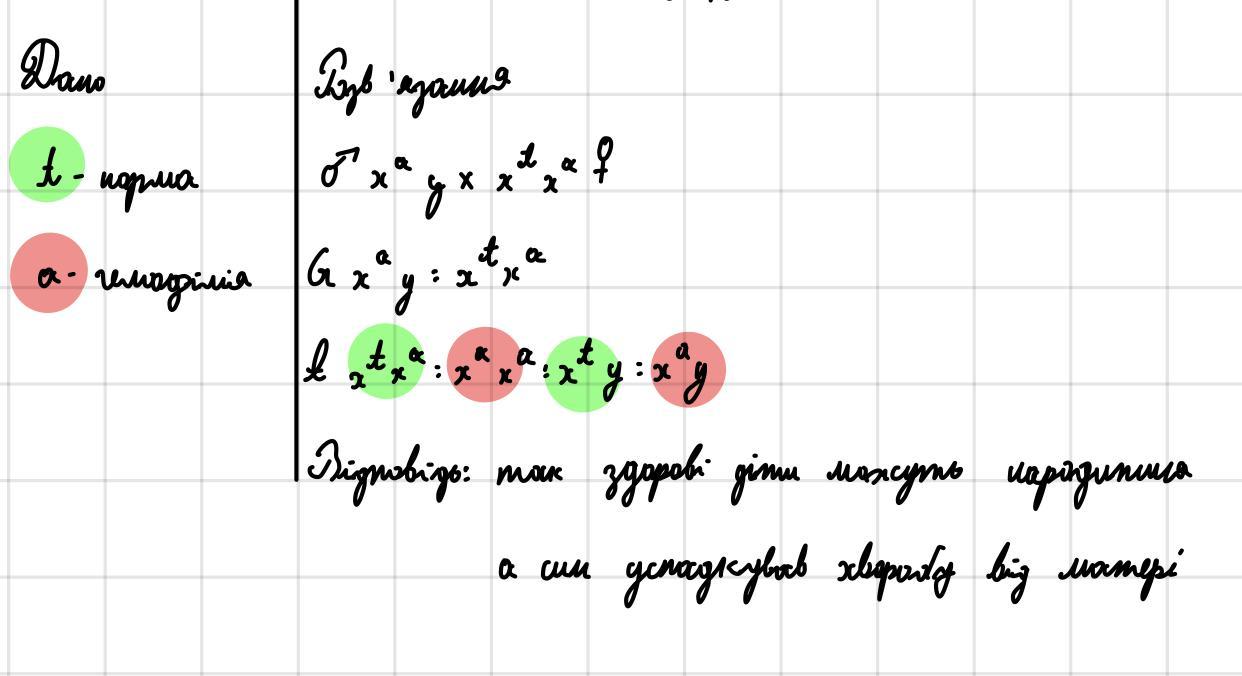 Дано
t - норма
a - гемофілія
Розв'язання
♂ xᵃ y × xᵗ xᵃ ♀
G xᵃ y : xᵗ xᵃ
f xᵗ xᵃ : xᵃ xᵃ : xᵗ y : xᵃ y
Відповідь: так здорові діти можуть народитися
а син успадкував хворобу від матері